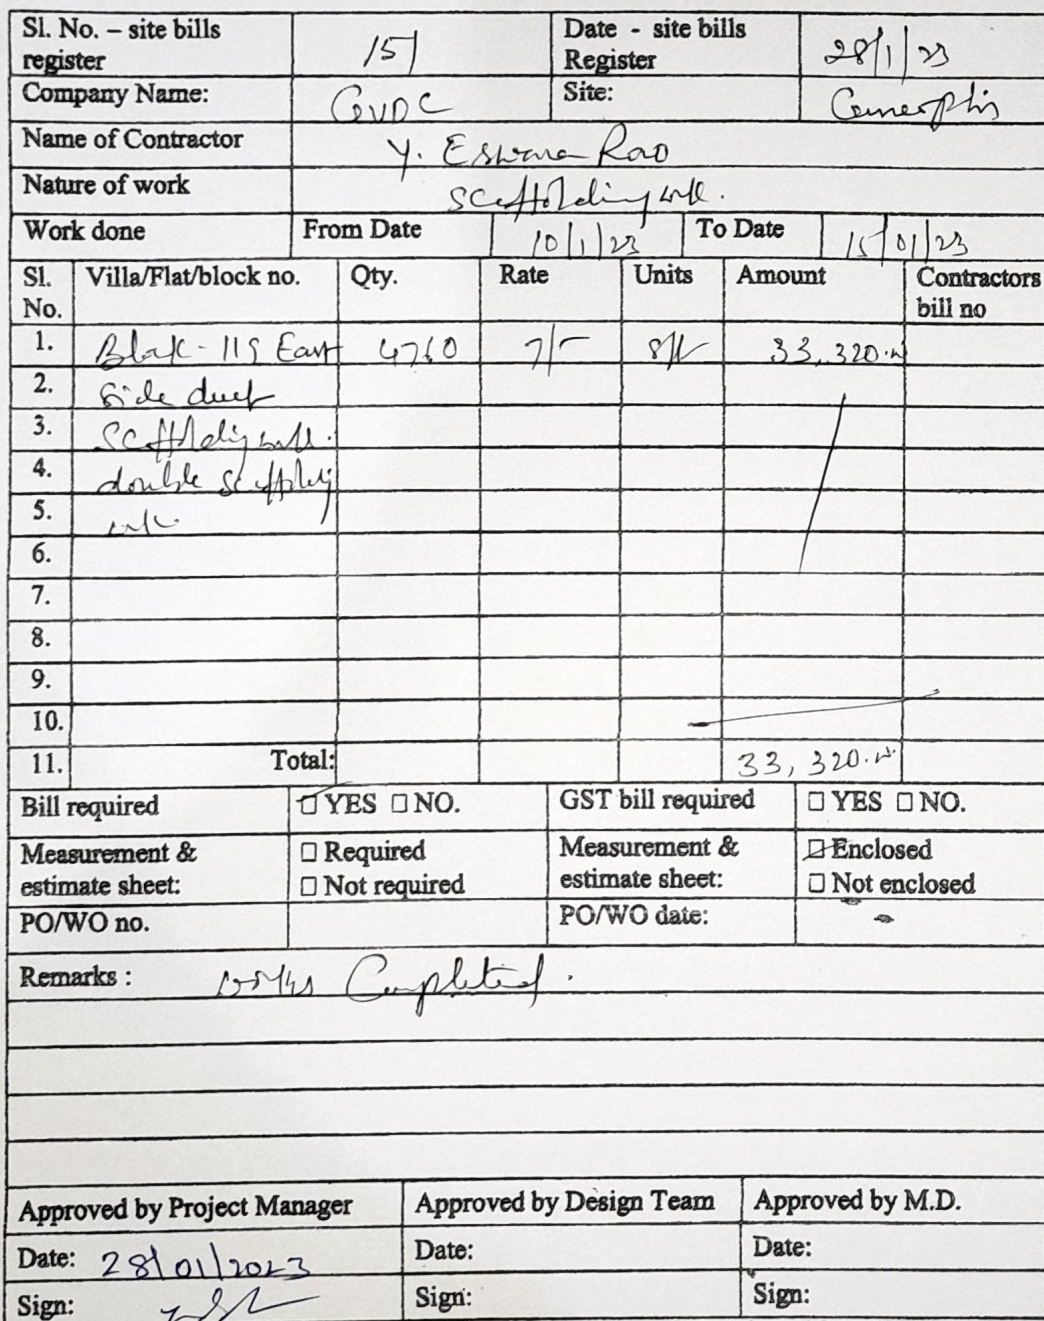 Sl. No. – site bills register 151 Date - site bills Register 28/1/23
Company Name: GVDC Site:
Name of Contractor Y. Eswara Rao
Nature of work Scaffolding work.
Work done From Date 10/1/23 To Date 15/01/23
Sl. No. Villa/Flat/block no. Qty. Rate Units Amount Contractors bill no
1. Block - 119 East 4760 7/- sft 33,320.00
2. Side duct
3. Scaffolding work.
4. double scaffolding
5. work.
6.
7.
8.
9.
10.
11. Total: 33,320.00
Bill required ☐ YES ☐ NO. GST bill required ☐ YES ☐ NO.
Measurement & estimate sheet: ☐ Required ☐ Not required Measurement & estimate sheet: ☑ Enclosed ☐ Not enclosed
PO/WO no. PO/WO date:
Remarks : works Completed.
Approved by Project Manager Approved by Design Team Approved by M.D.
Date: 28/01/2023 Date: Date:
Sign: Sign: Sign: